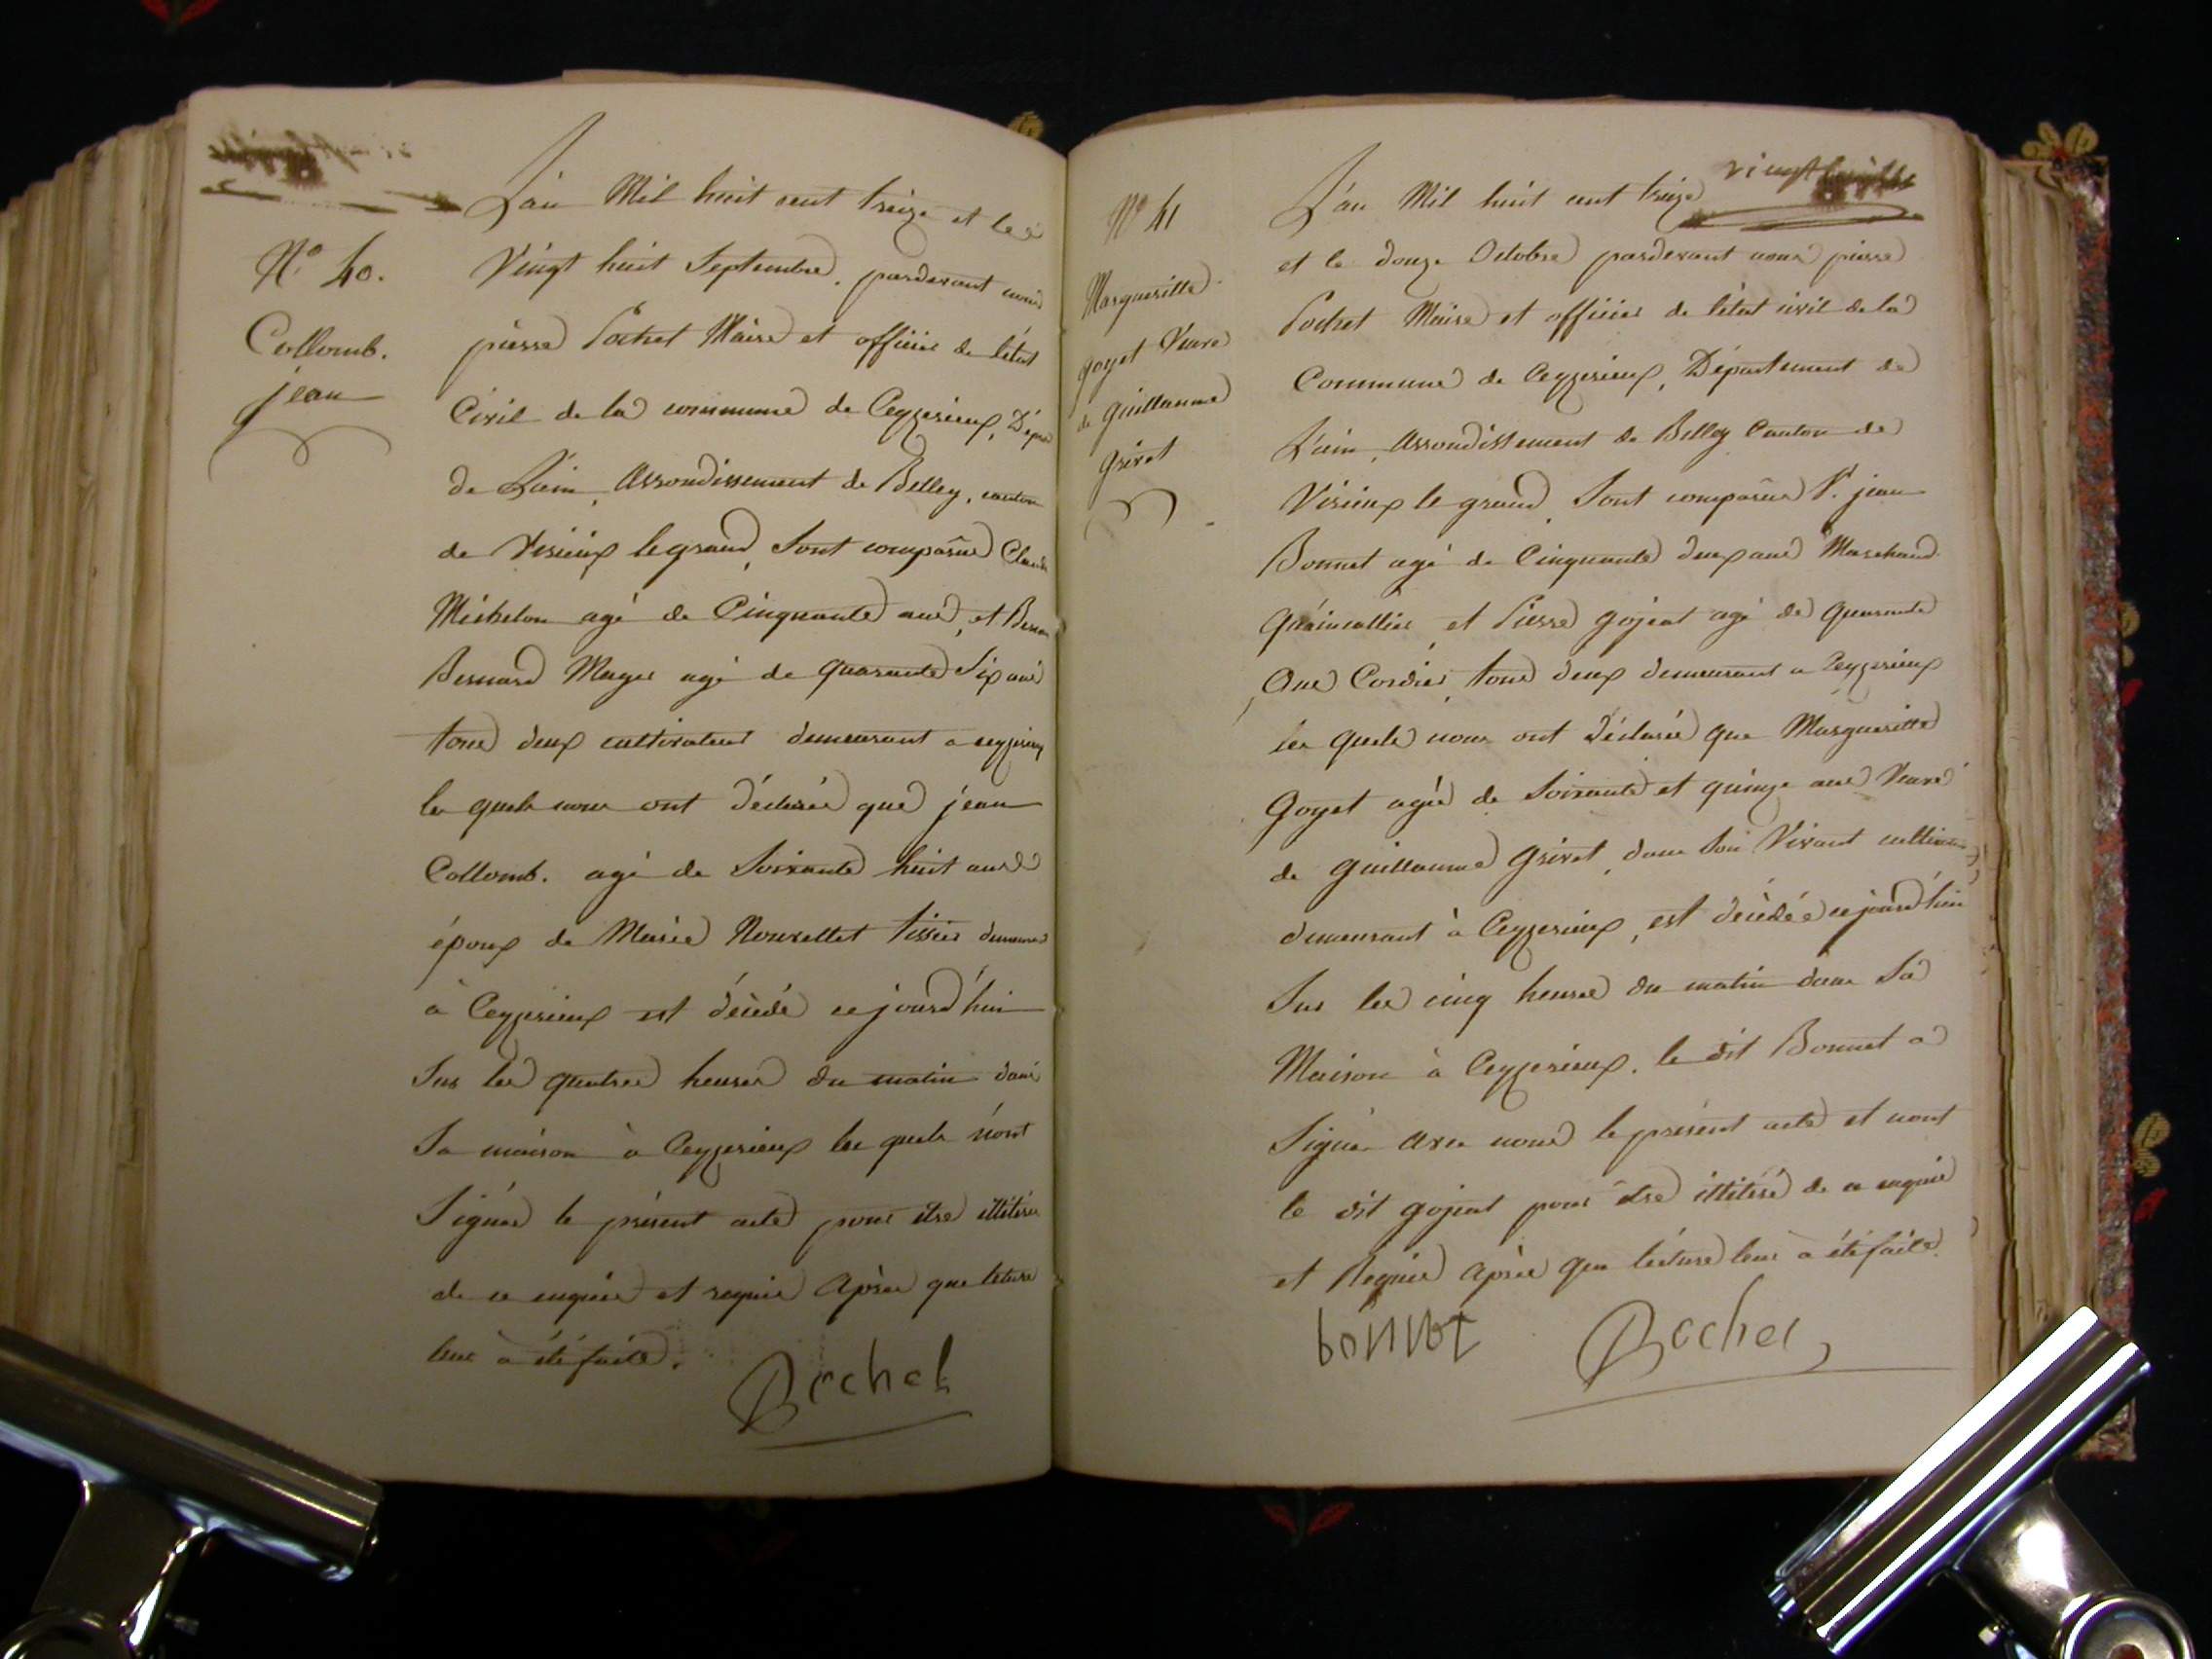 N.o 40.
Collomb.
jean
L'an Mil huit cent treize et les
Vingt huit Septembre. pardevant nous
pierre Pochet Maire et officier de l'état
Civil de la commune de Ceyzerieux, Dépt
de L'ain, Arrondissement de Belley, canton
de Virieux le grand, Sont comparus Claude
Michelon agé de Cinquante ans, et
Bernard Mager agé de quarante Six ans
tous deux cultivateurs demeurant a ceyzerieux
les quels nous ont déclarés que jean
Collomb. agé de Soixante huit ans
époux de Marie Nouvellet tissier demeurant
à Ceyzerieux est décédé cejourd'hui
Sur les quatres heures du matin dans
Sa maison à Ceyzerieux les quels n'ont
Signés le présent acte pour être illitérés
de ce enquis et requis Après que leture
leur à été faite.
Pochet
vingt
N.o 41
Margueritte
goyet Veuve
de guillaume
grivet
L'an Mil huit cent treize
et le douze Octobre pardevant nous pierre
Pochet Maire et officier de l'état civil de la
Commune de Ceyzerieux, Département de
L'ain, Arrondissement de Belley Canton de
Virieux le grand, Sont comparus S.r jean
Bonnet agé de Cinquante deux ans Marchand
quaincallier et Pierre gojeat agé de quarante
Ans Cordier, tous deux demeurant a Ceyzerieux
les quels nous ont Déclarés que Margueritte
Goyet agée de Soixante et quinze ans Veuve
de guillaume grivet, dans Son Vivant cultivateur
demeurant à Ceyzerieux, est décédée cejourd'hui
Sur les cinq heures du matin dans Sa
Maison à Ceyzerieux. le dit Bonnet a
Signé avec nous le présent acte et nont
le dit gojeat pour être illitéré de ce enquis
et Requis Après que lecture leur à été faite.
bonnet Pochet